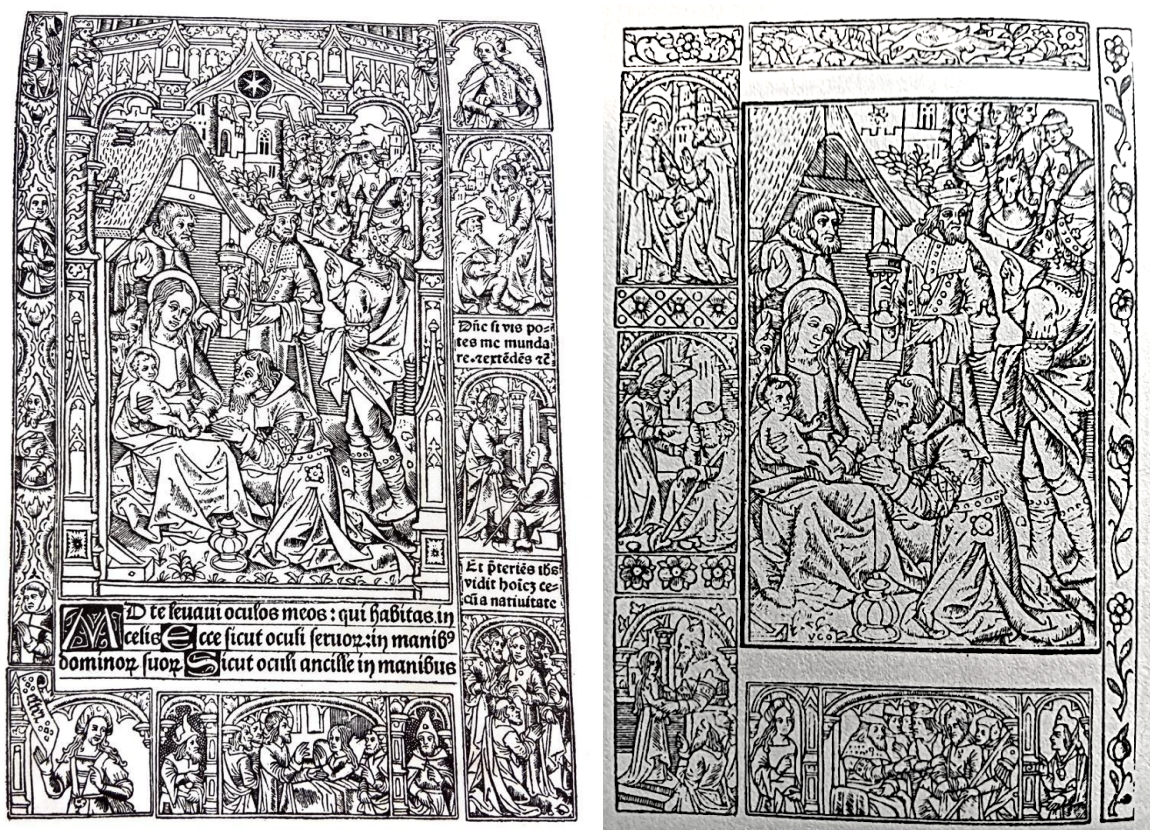 Dñe si vis po=
tes me munda
re.⁊extēdēs ⁊c̄
Et p̄teriēs ihs
vidit hoiēꝫ ce=
cū a natiuitate
AD te leuaui oculos meos: qui habitas in
celis Ecce sicut oculi seruoꝝ: in manibꝰ
dominoꝝ suoꝝ Sicut oculi ancille in manibus